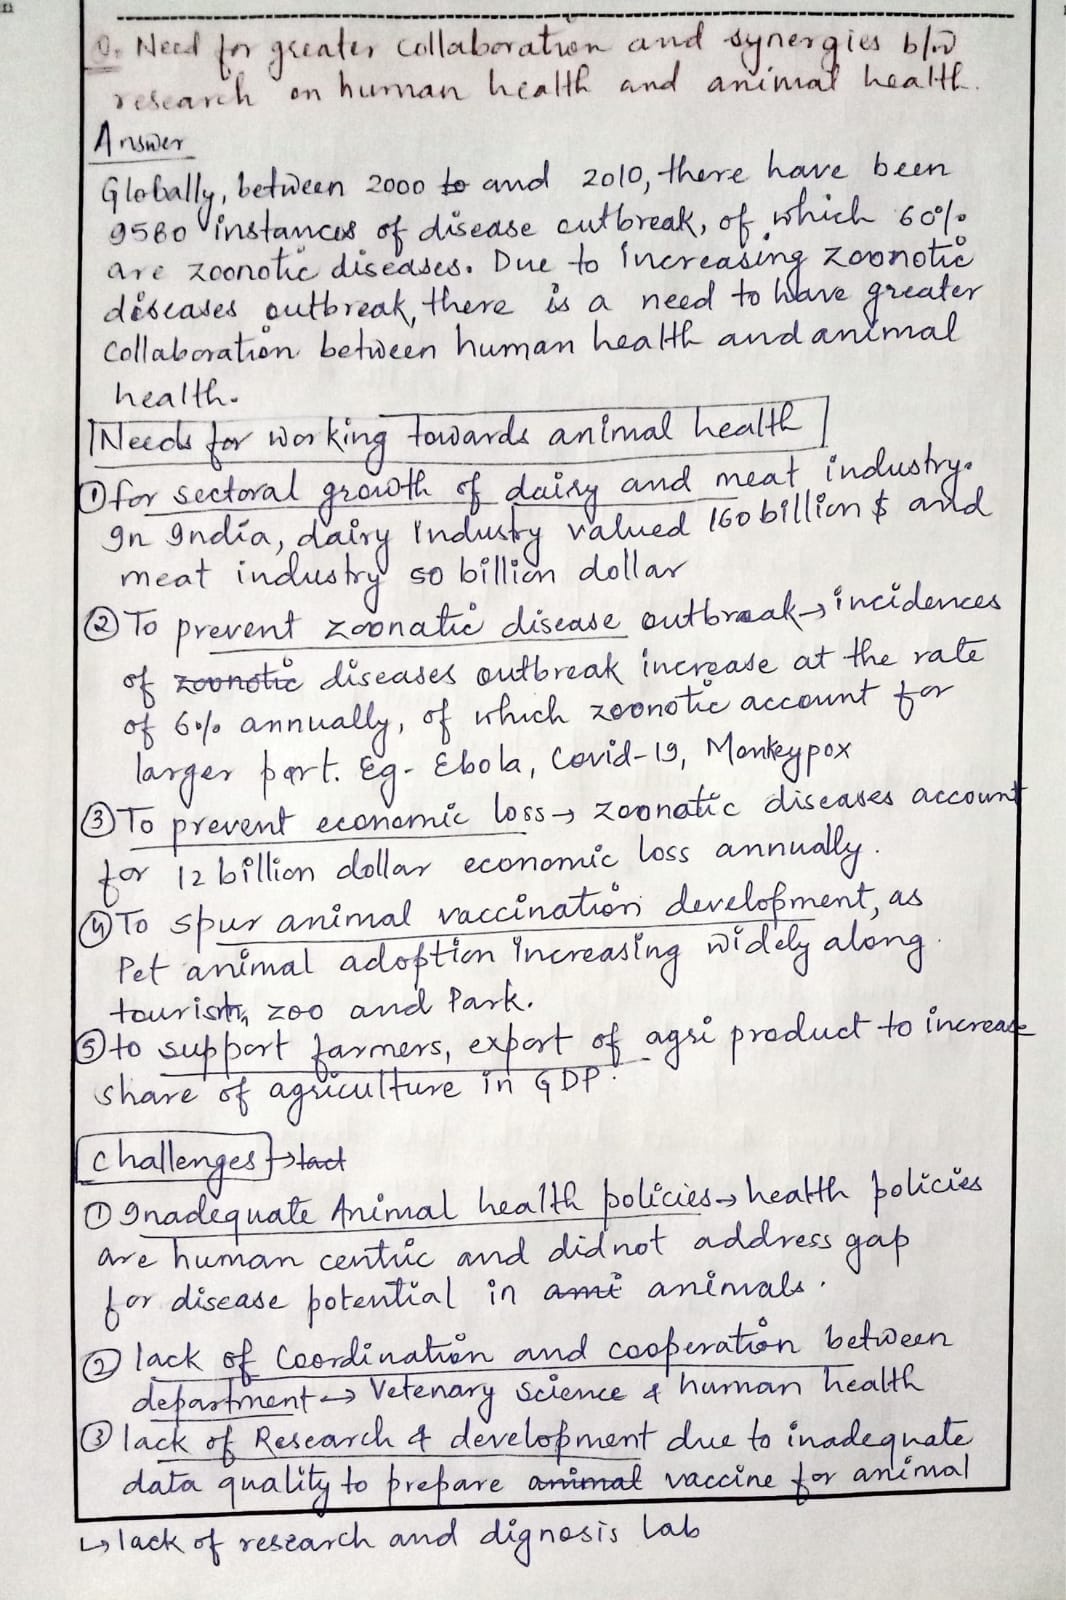 Q. Need for greater collaboration and synergies b/w
research on human health and animal health.
Answer
Globally, between 2000 to and 2010, there have been
9580 instances of disease outbreak, of which 60%
are zoonotic diseases. Due to increasing zoonotic
diseases outbreak, there is a need to have greater
collaboration between human health and animal
health.
Needs for working towards animal health
① for sectoral growth of dairy and meat industry.
In India, dairy industry valued 160 billion $ and
meat industry 50 billion dollar
② To prevent zoonatic disease outbreak → incidences
of zoonotic diseases outbreak increase at the rate
of 6% annually, of which zoonotic account for
larger part. Eg- Ebola, Covid-19, Monkeypox
③ To prevent economic loss → zoonatic diseases account
for 12 billion dollar economic loss annually.
④ To spur animal vaccination development, as
Pet animal adoption increasing widely along
tourism, zoo and Park.
⑤ to support farmers, export of agri product to increase
share of agriculture in GDP.
Challenges → lact
① Inadequate Animal health policies → health policies
are human centric and did not address gap
for disease potential in ami animals.
② lack of Coordination and cooperation between
department → Vetenary science & human health
③ lack of Research & development due to inadequate
data quality to prepare animal vaccine for animal
↳ lack of research and dignosis lab